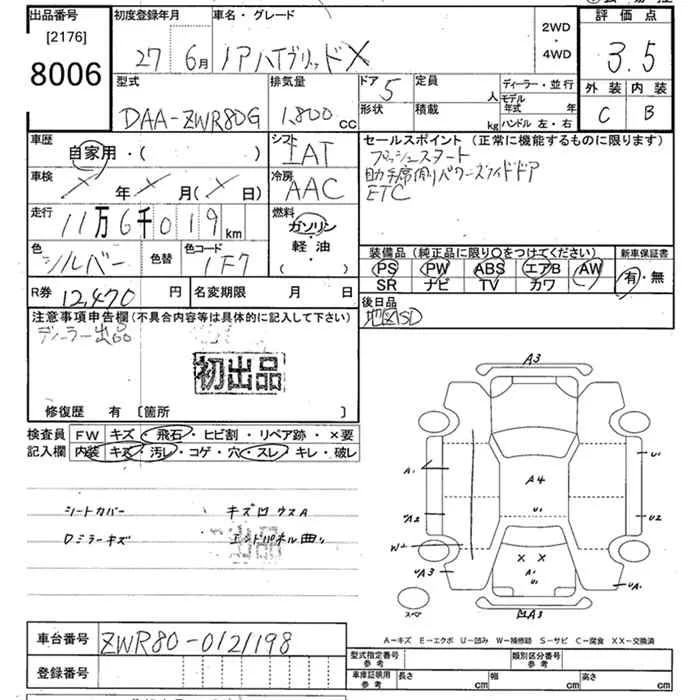 出品番号
[2176]
8006
初度登録年月
27 6月
車名・グレード
ノアハイブリッドX
2WD
・
4WD
評価点
3.5
外装 内装
C B
型式
DAA-ZWR80G
排気量
1,800 cc
ドア 5
形状
定員 人
積載 kg
ディーラー・並行
モデル年式 年
ハンドル 左・右
車歴
自家用・( )
車検
× 年 × 月(× 日)
走行
11万6千019 km
色
シルバー
色替
色コード
1F7
シフト
IAT
冷房
AAC
燃料
ガソリン
・
軽油
( )
セールスポイント(正常に機能するものに限ります)
プッシュスタート
助手席側パワースライドドア
ETC
装備品(純正品に限り〇をつけてください)
PS PW ABS エアB AW
SR ナビ TV カワ
新車保証書
有・無
R券 12,470 円
名変期限 月 日
後日品
地図SD
注意事項申告欄(不具合内容等は具体的に記入して下さい)
ディーラー出品
初出品
修復歴 有 [箇所 ]
検査員 FW キズ・飛石・ヒビ割・リペア跡・×要
記入欄 内装 キズ・汚レ・コゲ・穴・スレ・キレ・破レ
シートカバー キズ凹ウスA
Dミラーキズ エンドパネル曲り
出品
A3
A1
U1
A4
U1
A2
U2
W2
× ×
A1
U1
UA3
UA1
スペア
凹A3
A-キズ E-エクボ U-凹み W-補修跡 S-サビ C-腐食 XX-交換済
車台番号 ZWR80-0121198
登録番号
型式指定番号
参考
類別区分番号
参考
車庫証明用
参考
長さ cm
幅 cm
高さ cm